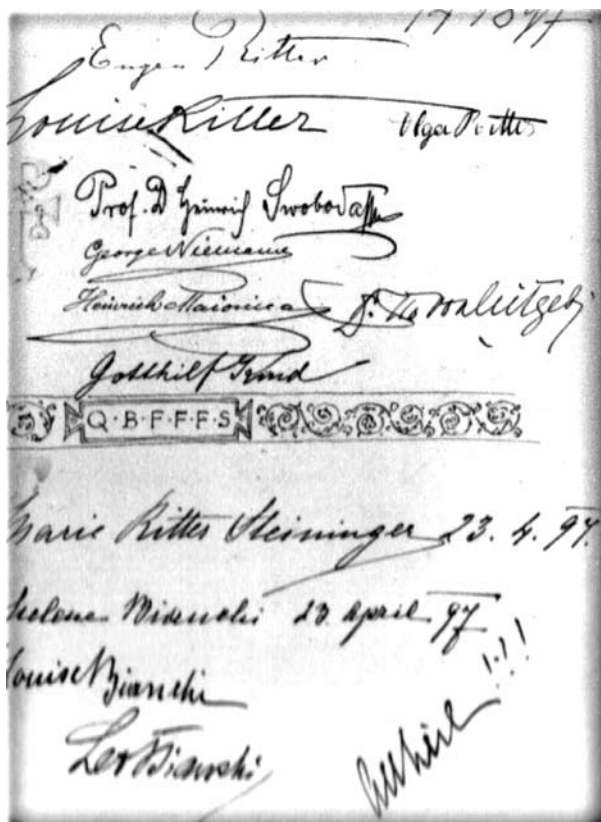 1897
Eugen Ritter
Louise Ritter Olga Ritter
Prof. Dr Heinrich Swoboda
George Niemann
Heinrich Maionica Dr.
Gotthilf
Q·B·F·F·F·S
Marie Ritter Steininger 23. 4. 97.
Helene Bianchi 23. April 97
Louise Bianchi
Leo Bianchi
!!!